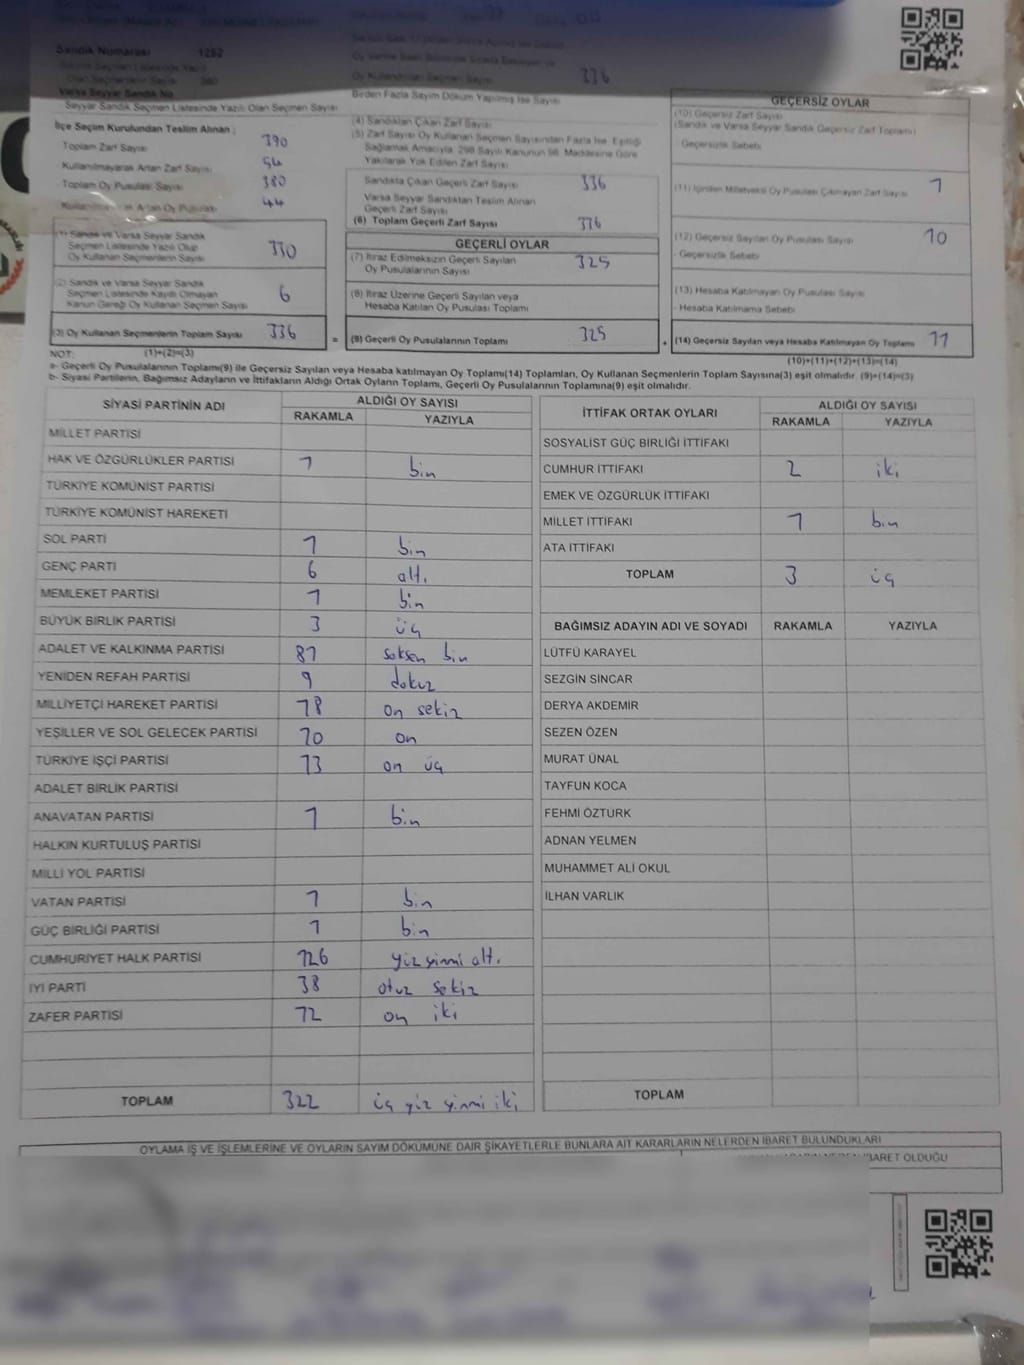 Sandık Numarası 1252
336
Varsa Seyyar Sandık No
Seyyar Sandık Seçmen Listesinde Yazılı Olan Seçmen Sayısı
Birden Fazla Sayım Döküm Yapılmış İse Sayısı
İlçe Seçim Kurulundan Teslim Alınan ;
Toplam Zarf Sayısı 390
Kullanılmayarak Artan Zarf Sayısı 54
Toplam Oy Pusulası Sayısı 380
Artan Oy Pusulası 44
(1) Sandık ve Varsa Seyyar Sandık
Seçmen Listesinde Yazılı Olup
Oy Kullanan Seçmenlerin Sayısı 330
(2) Sandık ve Varsa Seyyar Sandık
Seçmen Listesinde Kaydı Olmayan
Kanun Gereği Oy Kullanan Seçmen Sayısı 6
(3) Oy Kullanan Seçmenlerin Toplam Sayısı 336
(4) Sandıktan Çıkan Zarf Sayısı
(5) Zarf Sayısı Oy Kullanan Seçmen Sayısından Fazla İse, Eşitliği
Sağlamak Amacıyla, 298 Sayılı Kanunun 98. Maddesine Göre
Yakılarak Yok Edilen Zarf Sayısı
Sandıkta Çıkan Geçerli Zarf Sayısı 336
Varsa Seyyar Sandıktan Teslim Alınan
Geçerli Zarf Sayısı
(6) Toplam Geçerli Zarf Sayısı 336
GEÇERLİ OYLAR
(7) İtiraz Edilmeksizin Geçerli Sayılan
Oy Pusulalarının Sayısı 325
(8) İtiraz Üzerine Geçerli Sayılan veya
Hesaba Katılan Oy Pusulası Toplamı
= (9) Geçerli Oy Pusulalarının Toplamı 325
GEÇERSİZ OYLAR
(10) Geçersiz Zarf Sayısı
(Sandık ve Varsa Seyyar Sandık Geçersiz Zarf Toplamı)
- Geçersizlik Sebebi
(11) İçinden Milletvekili Oy Pusulası Çıkmayan Zarf Sayısı 1
(12) Geçersiz Sayılan Oy Pusulası Sayısı 10
- Geçersizlik Sebebi
(13) Hesaba Katılmayan Oy Pusulası Sayısı
- Hesaba Katılmama Sebebi
+ (14) Geçersiz Sayılan veya Hesaba Katılmayan Oy Toplamı 11
NOT: (1)+(2)=(3) (10)+(11)+(12)+(13)=(14)
a- Geçerli Oy Pusulalarının Toplamı(9) ile Geçersiz Sayılan veya Hesaba katılmayan Oy Toplamı(14) Toplamları, Oy Kullanan Seçmenlerin Toplam Sayısına(3) eşit olmalıdır. (9)+(14)=(3)
b- Siyasi Partilerin, Bağımsız Adayların ve İttifakların Aldığı Ortak Oyların Toplamı, Geçerli Oy Pusulalarının Toplamına(9) eşit olmalıdır.
SİYASİ PARTİNİN ADI ALDIĞI OY SAYISI
RAKAMLA YAZIYLA
MİLLET PARTİSİ
HAK VE ÖZGÜRLÜKLER PARTİSİ 1 bir
TÜRKİYE KOMÜNİST PARTİSİ
TÜRKİYE KOMÜNİST HAREKETİ
SOL PARTİ 1 bir
GENÇ PARTİ 6 altı
MEMLEKET PARTİSİ 1 bir
BÜYÜK BİRLİK PARTİSİ 3 üç
ADALET VE KALKINMA PARTİSİ 81 seksen bir
YENİDEN REFAH PARTİSİ 9 dokuz
MİLLİYETÇİ HAREKET PARTİSİ 18 on sekiz
YEŞİLLER VE SOL GELECEK PARTİSİ 10 on
TÜRKİYE İŞÇİ PARTİSİ 13 on üç
ADALET BİRLİK PARTİSİ
ANAVATAN PARTİSİ 1 bir
HALKIN KURTULUŞ PARTİSİ
MİLLİ YOL PARTİSİ
VATAN PARTİSİ 1 bir
GÜÇ BİRLİĞİ PARTİSİ 1 bir
CUMHURİYET HALK PARTİSİ 126 yüz yirmi altı
İYİ PARTİ 38 otuz sekiz
ZAFER PARTİSİ 12 on iki
TOPLAM 322 üç yüz yirmi iki
İTTİFAK ORTAK OYLARI ALDIĞI OY SAYISI
RAKAMLA YAZIYLA
SOSYALİST GÜÇ BİRLİĞİ İTTİFAKI
CUMHUR İTTİFAKI 2 iki
EMEK VE ÖZGÜRLÜK İTTİFAKI
MİLLET İTTİFAKI 1 bir
ATA İTTİFAKI
TOPLAM 3 üç
BAĞIMSIZ ADAYIN ADI VE SOYADI RAKAMLA YAZIYLA
LÜTFÜ KARAYEL
SEZGİN SİNCAR
DERYA AKDEMİR
SEZEN ÖZEN
MURAT ÜNAL
TAYFUN KOCA
FEHMİ ÖZTÜRK
ADNAN YELMEN
MUHAMMET ALİ OKUL
İLHAN VARLIK
TOPLAM
OYLAMA İŞ VE İŞLEMLERİNE VE OYLARIN SAYIM DÖKÜMÜNE DAİR ŞİKAYETLERLE BUNLARA AİT KARARLARIN NELERDEN İBARET BULUNDUKLARI
İBARET OLDUĞU